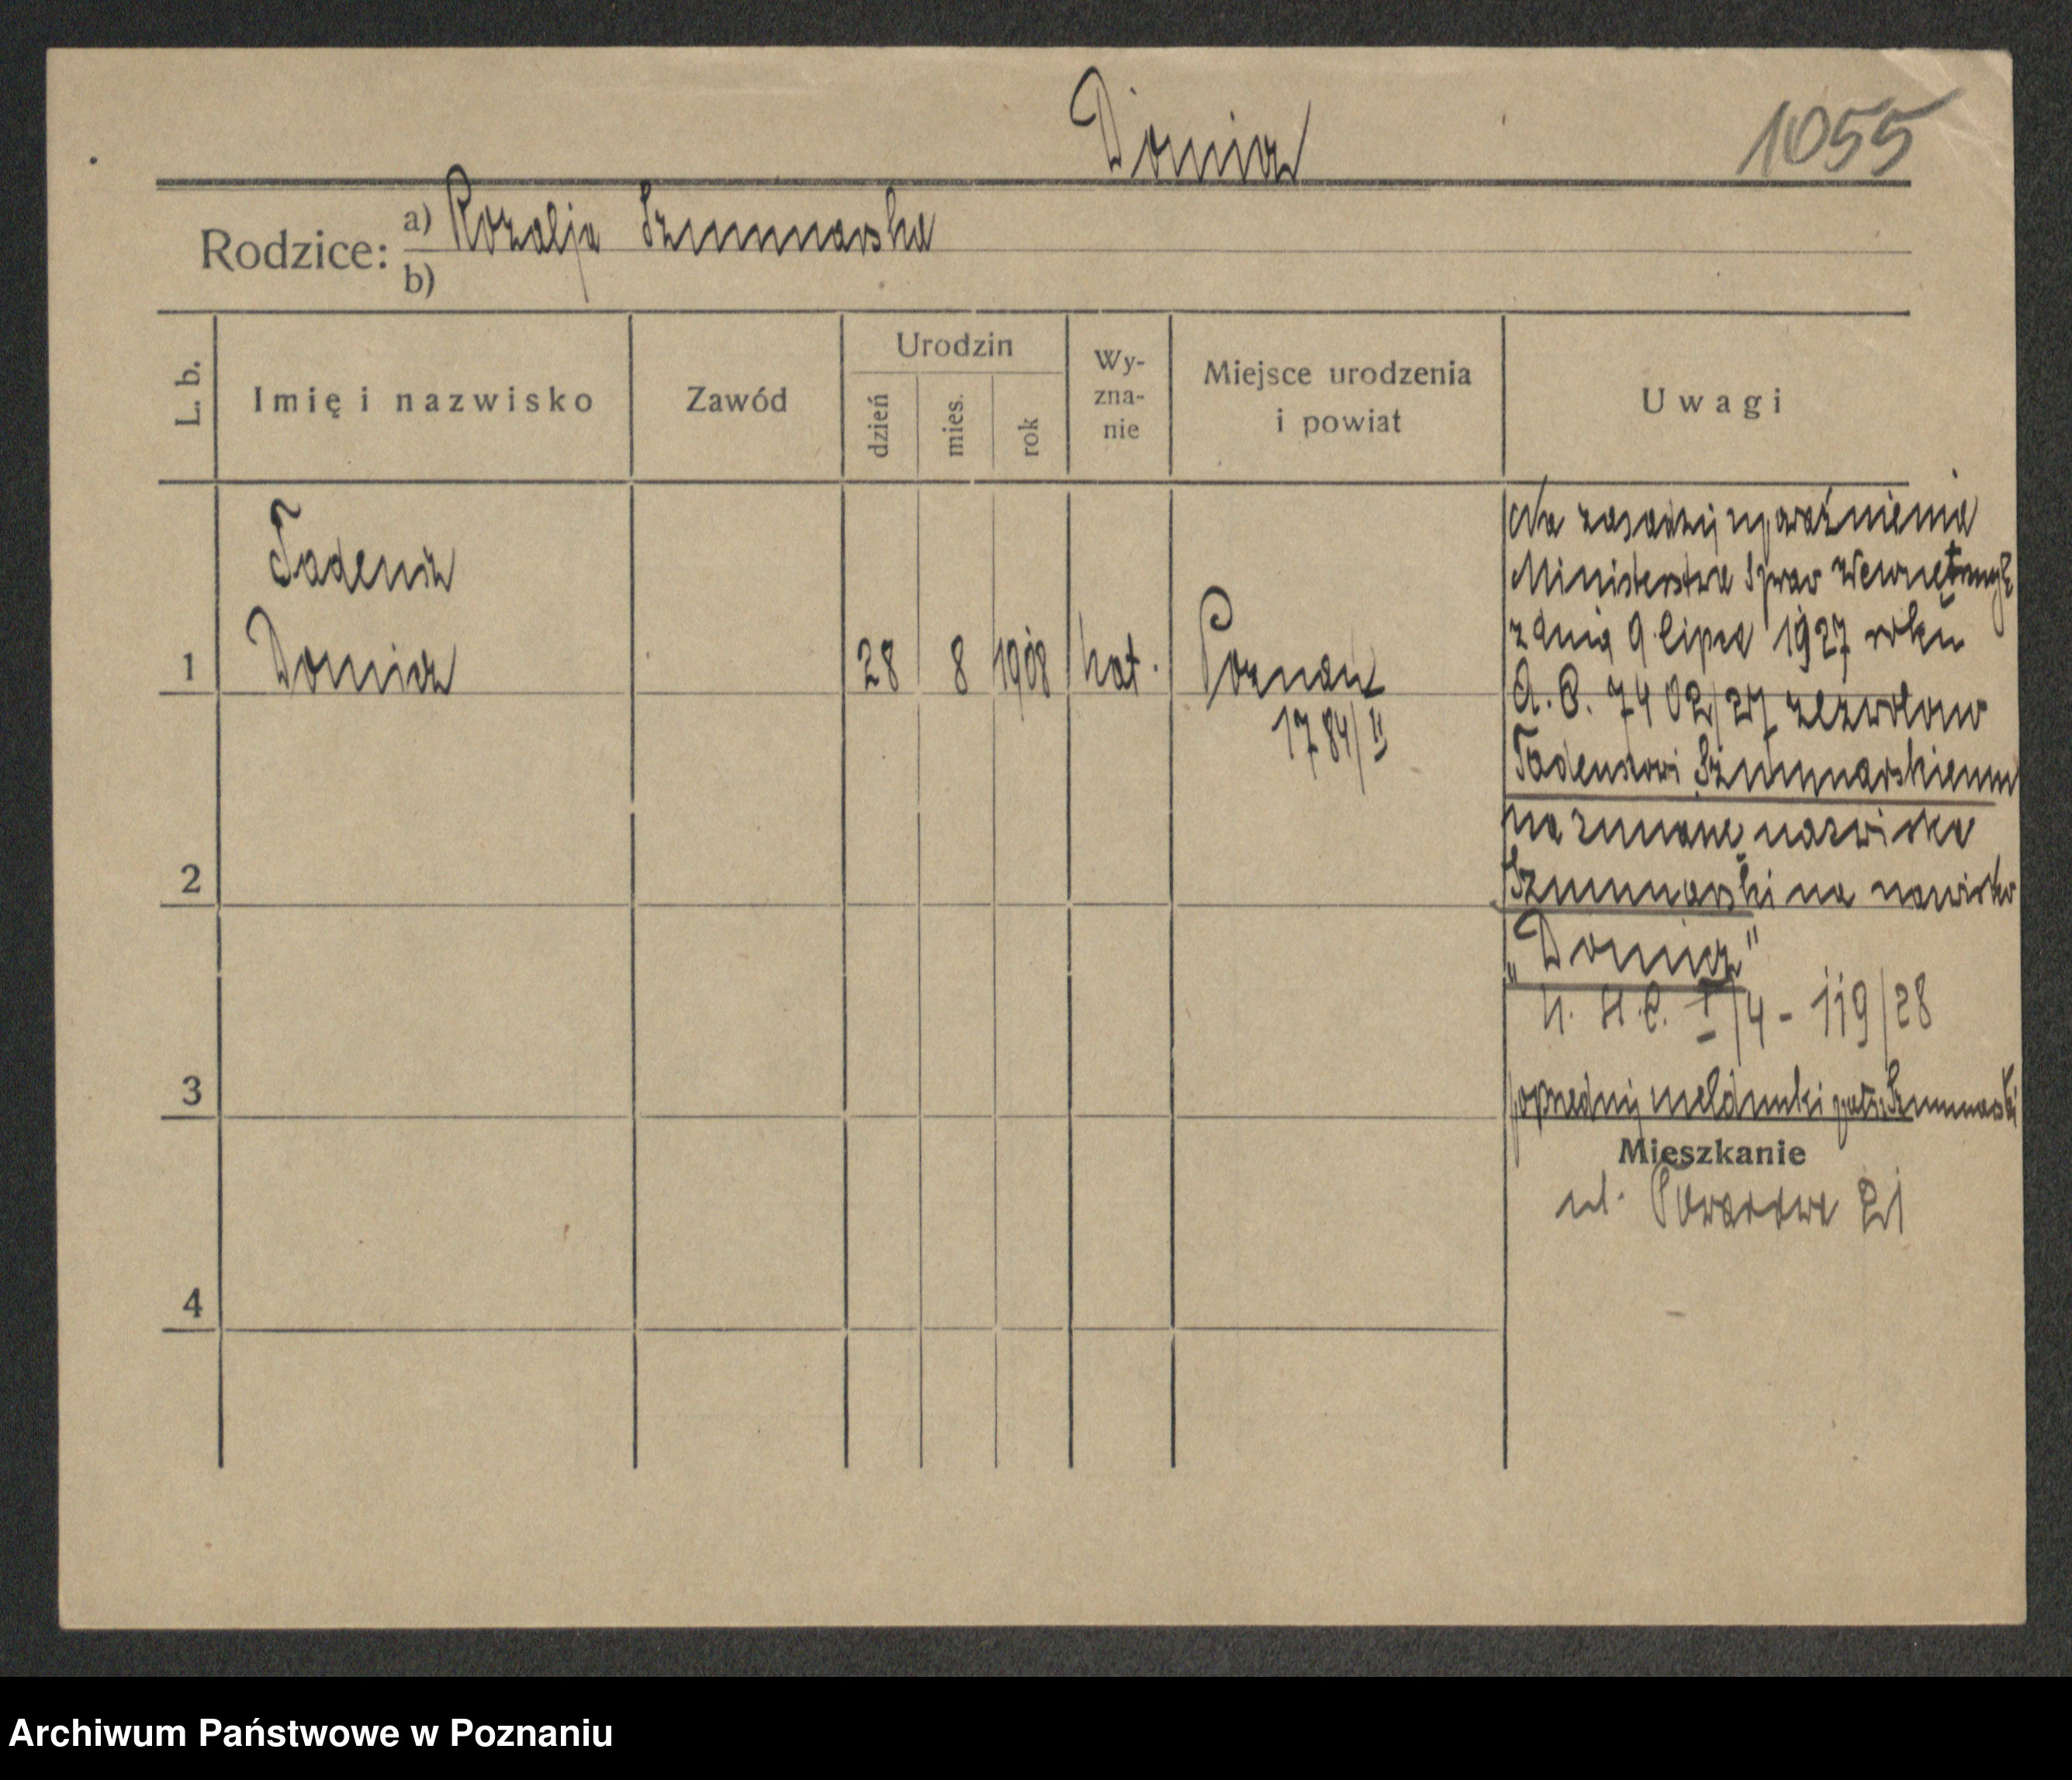 Domicz
1055
Rodzice:
a) Rozalja Szumnarska
b)
L. b.
Imię i nazwisko
Zawód
Urodzin
dzień
mies.
rok
Wy-
zna-
nie
Miejsce urodzenia
i powiat
Uwagi
Tadeusz
1 Domicz 28 8 1908 kat. Poznań
1784/II
Na zasadzie upoważnienia
Ministerstwa Spraw Wewnętrznych
z dnia 9 lipca 1927 roku
7402/27 zezwolono
Tadeuszowi Szumnarskiemu
na zmianę nazwiska
Szumnarski na nazwisko
„Domicz”
I/4 - 119/28
poprzednie meldunki patrz Szumnarski
2
3
4
Mieszkanie
ul. 21
Archiwum Państwowe w Poznaniu